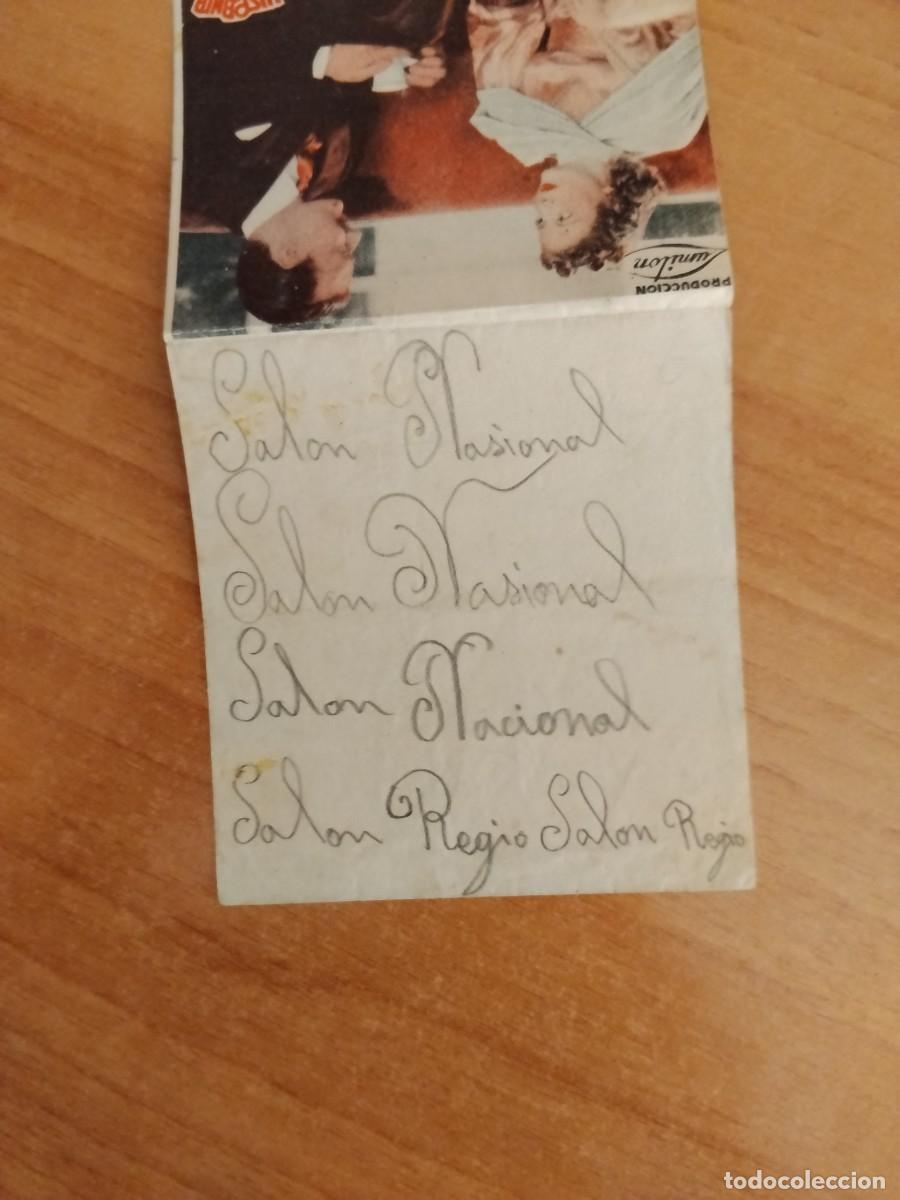 PRODUCCION
Lumiton
Salon Nasional
Salon Nasional
Salon Nacional
Salon Regio Salon Regio
todocoleccion